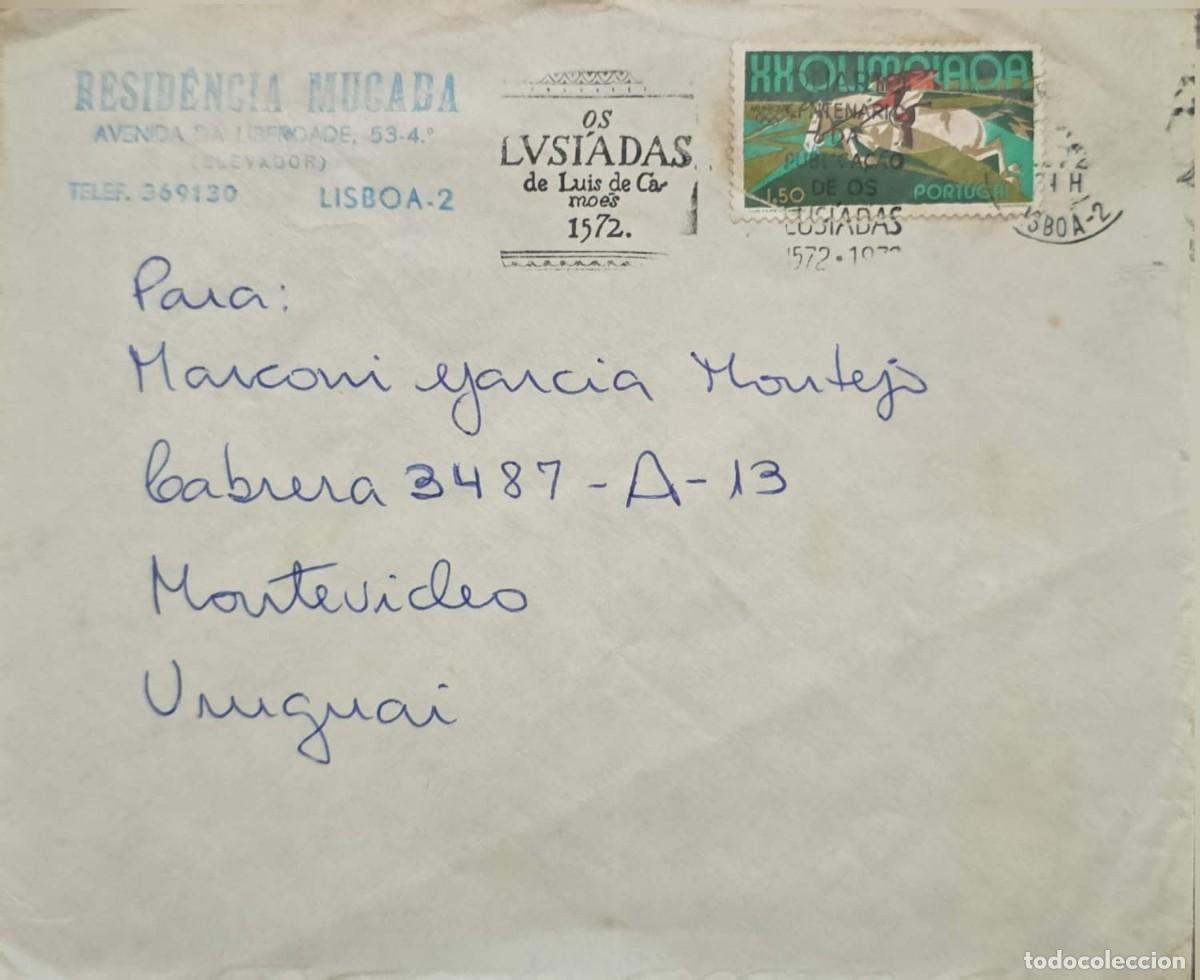 RESIDÊNCIA MUCABA
AVENIDA DA LIBERDADE, 53-4.º
(ELEVADOR)
TELEF. 369130 LISBOA-2
OS
LVSÍADAS
de Luis de Ca-
moes
1572.
XX OLIMPIADA
1.50 PORTUGAL
QUARTO
CENTENÁRIO
DA
PUBLICAÇÃO
DE OS
LUSÍADAS
1572 • 1972
LISBOA-2
Para:
Marconi Garcia Montejo
Cabrera 3487-A-13
Montevideo
Uruguai
todocoleccion